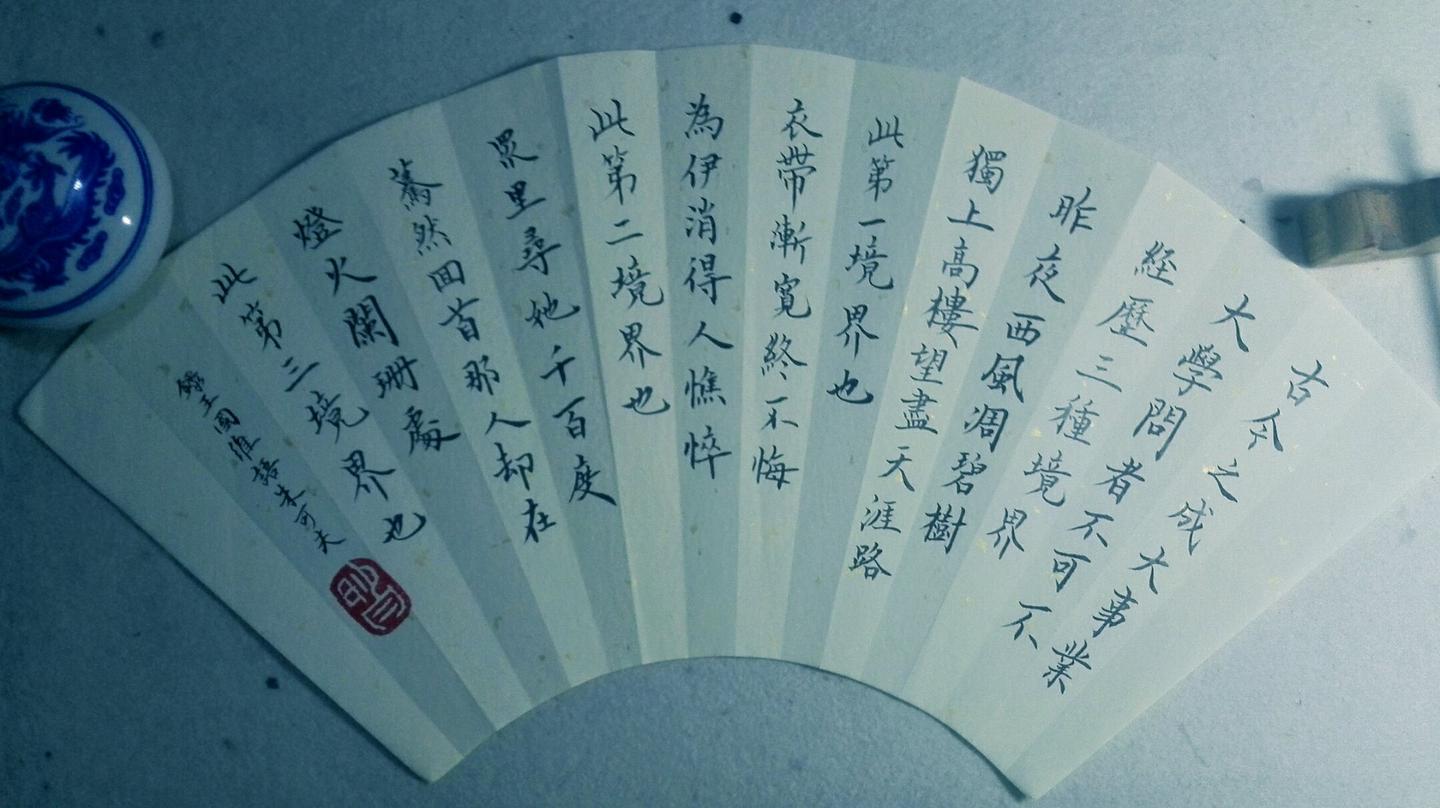 古今之成大事業
大學問者不可不
経歷三種境界
昨夜西風凋碧樹
獨上高樓望盡天涯路
此第一境界也
衣帶漸寬終不悔
為伊消得人憔悴
此第二境界也
眾里尋她千百度
驀然回首那人却在
燈火闌珊處
此第三境界也
錄王國維語朱可夫